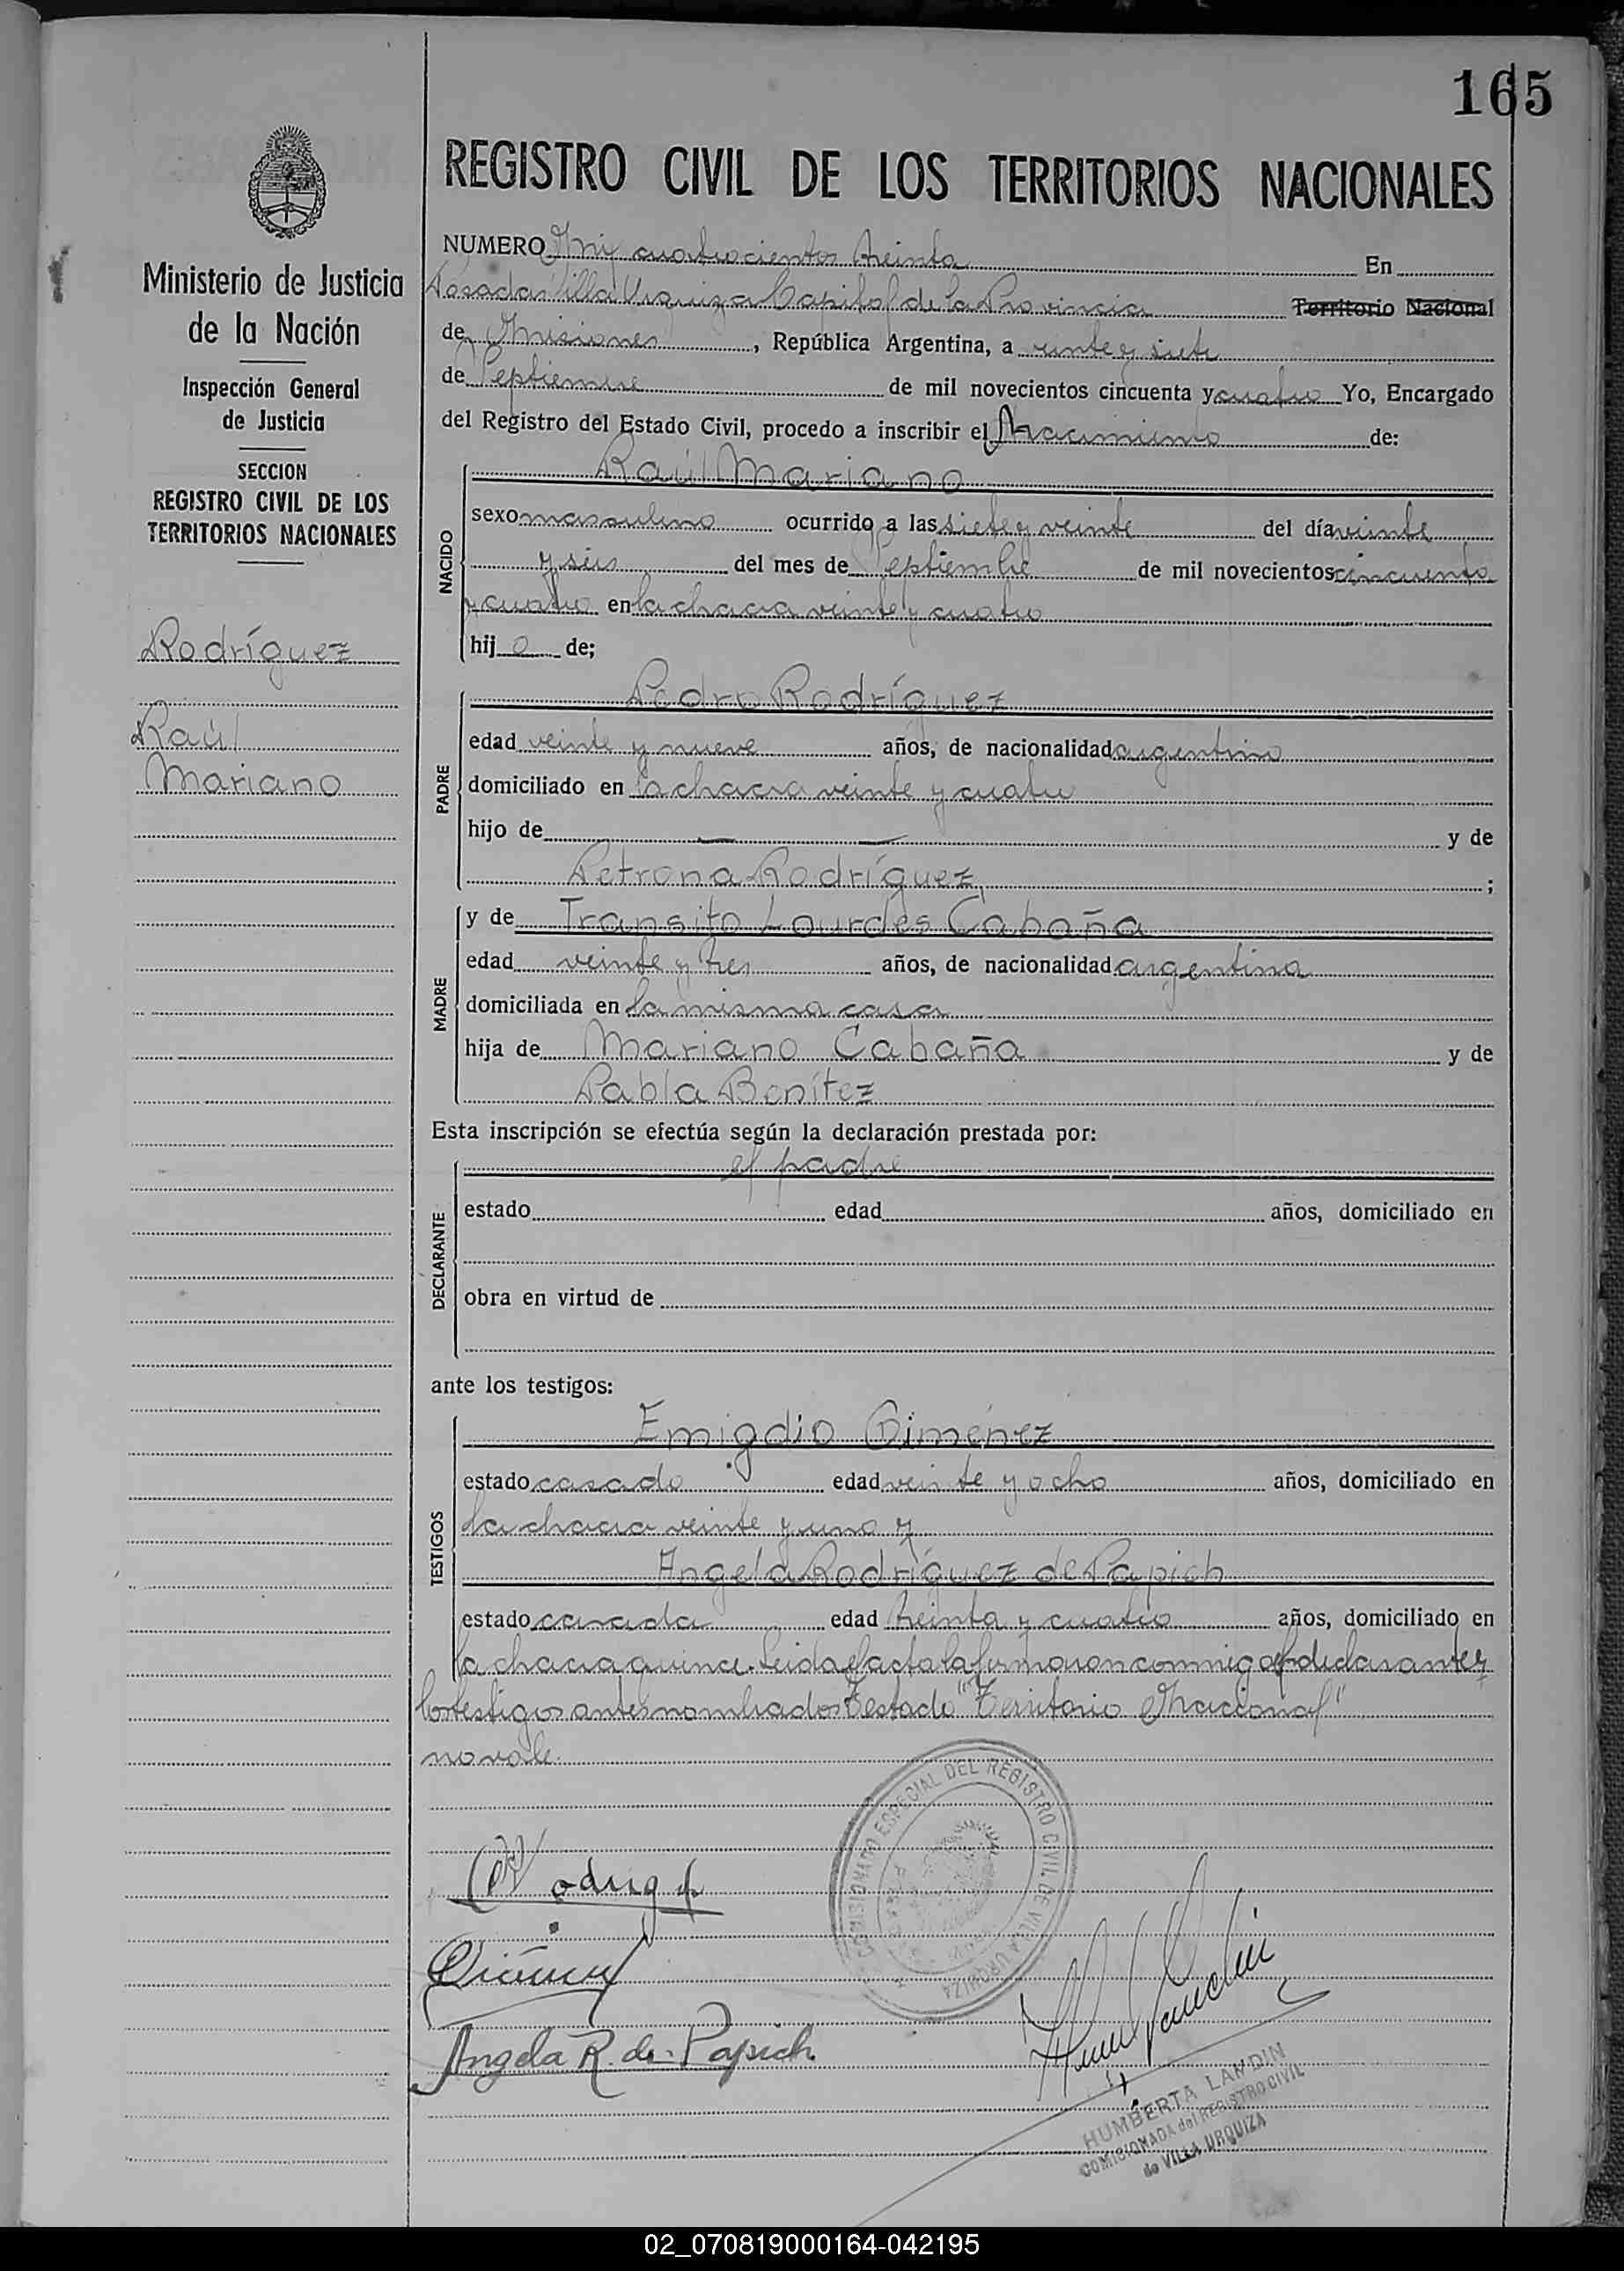 165
REGISTRO CIVIL DE LOS TERRITORIOS NACIONALES
Ministerio de Justicia
de la Nación
Inspección General
de Justicia
SECCION
REGISTRO CIVIL DE LOS
TERRITORIOS NACIONALES
Rodríguez
Raúl
Mariano
NUMERO Mil cuatrocientos treinta En
Posadas Villa Urquiza Capital de la Provincia Territorio Nacional
de Misiones, República Argentina, a veinte y siete
de Septiembre de mil novecientos cincuenta y cuatro Yo, Encargado
del Registro del Estado Civil, procedo a inscribir el Nacimiento de:
NACIDO
Raúl Mariano
sexo masculino ocurrido a las siete y veinte del día veinte
y seis del mes de Septiembre de mil novecientos cincuenta
y cuatro en la chacra veinte y cuatro
hijo de;
PADRE
Pedro Rodríguez
edad veinte y nueve años, de nacionalidad argentino
domiciliado en la chacra veinte y cuatro
hijo de — — y de
Petrona Rodríguez, ;
MADRE
y de Transito Lourdes Cabaña
edad veinte y tres años, de nacionalidad argentina
domiciliada en la misma casa
hija de Mariano Cabaña y de
Pabla Benítez
Esta inscripción se efectúa según la declaración prestada por:
DECLARANTE
el padre
estado edad años, domiciliado en
obra en virtud de
ante los testigos:
TESTIGOS
Emigdio Giménez
estado casado edad veinte y ocho años, domiciliado en
la chacra veinte y uno y
Angela Rodríguez de Papich
estado casada edad treinta y cuatro años, domiciliado en
la chacra quince. Leida el acta la firmaron conmigo el declarante y
los testigos antes nombrados Testado "Territorio Nacional"
no vale.
COMISIONADO ESPECIAL DEL REGISTRO CIVIL DE VILLA URQUIZA
Angela R. de Papich
HUMBERTA LANDIN
COMISIONADA del REGISTRO CIVIL
de VILLA URQUIZA
02_070819000164-042195